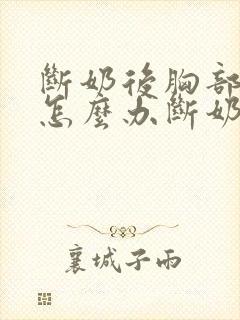 斷奶後胸部
怎麼办斷奶
襄城子雨